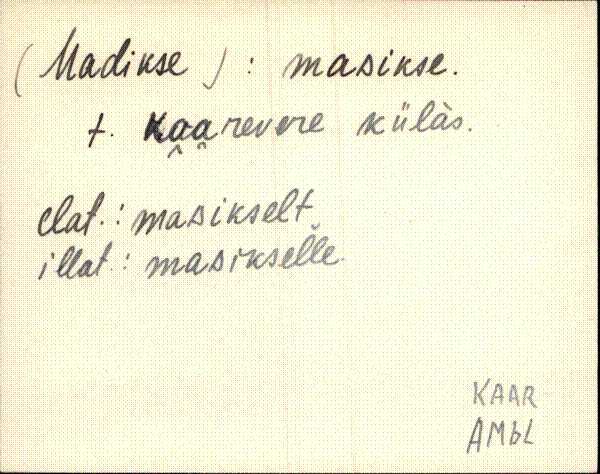 (Madikse) : masikse.
t. Kaarevere külàs.
elat.: masikselt
illat.: masikselle.
KAAR
AMbL